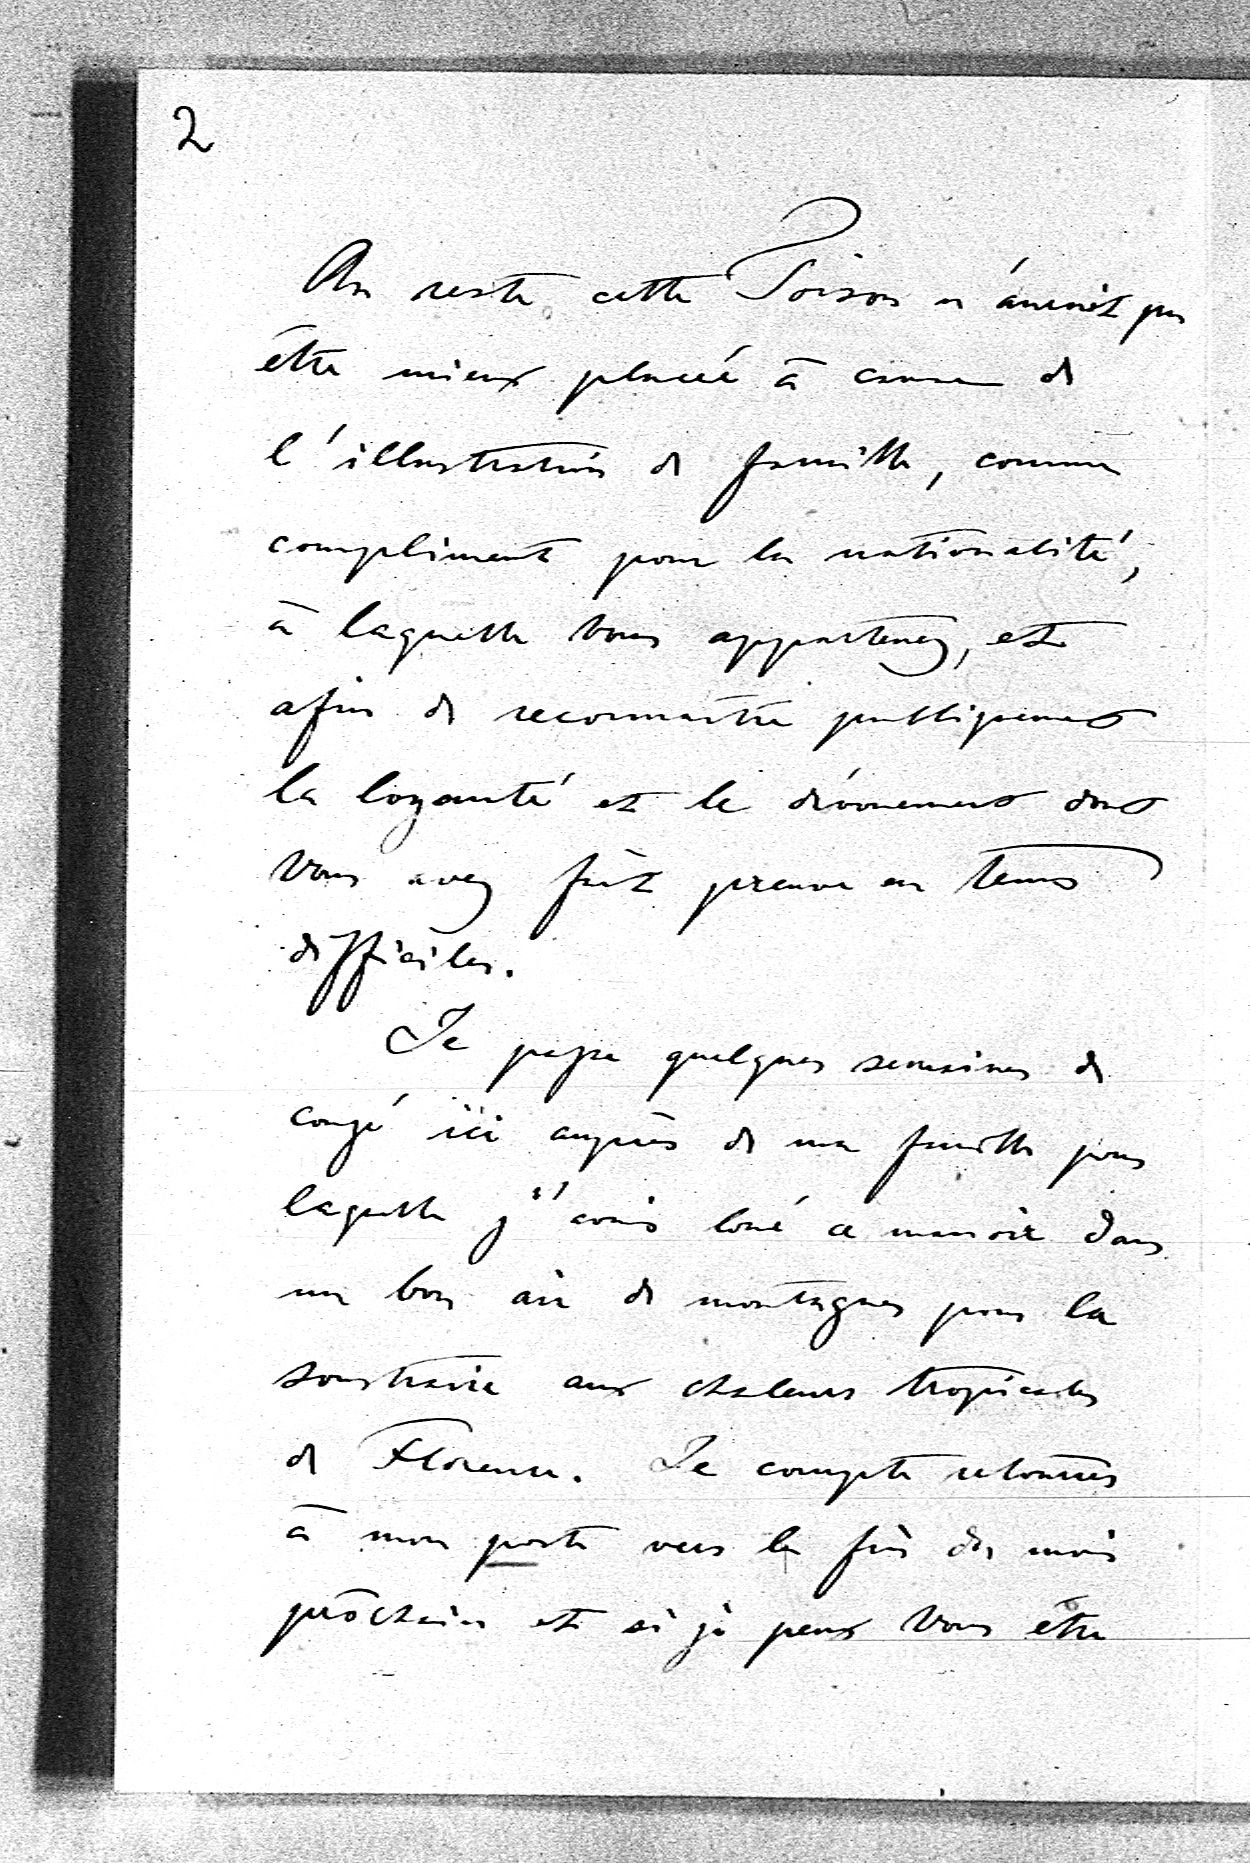 2
Au reste cette Toison n'aurait pu
être mieux placée à cause de
l'illustration de famille, comme
compliment pour la nationalité,
à laquelle vous appartenez, et
afin de reconnaître publiquement
la loyauté et le dévouement dont
vous avez fait preuve en tems
difficiles.
Je passe quelques semaines de
congé ici auprès de ma famille pour
laquelle j'avais loué ce manoir dans
un bon air de montagnes pour la
soustraire aux chaleurs tropicales
de Florence. Je compte retourner
à mon poste vers la fin du mois
prochain et si je peux vous être